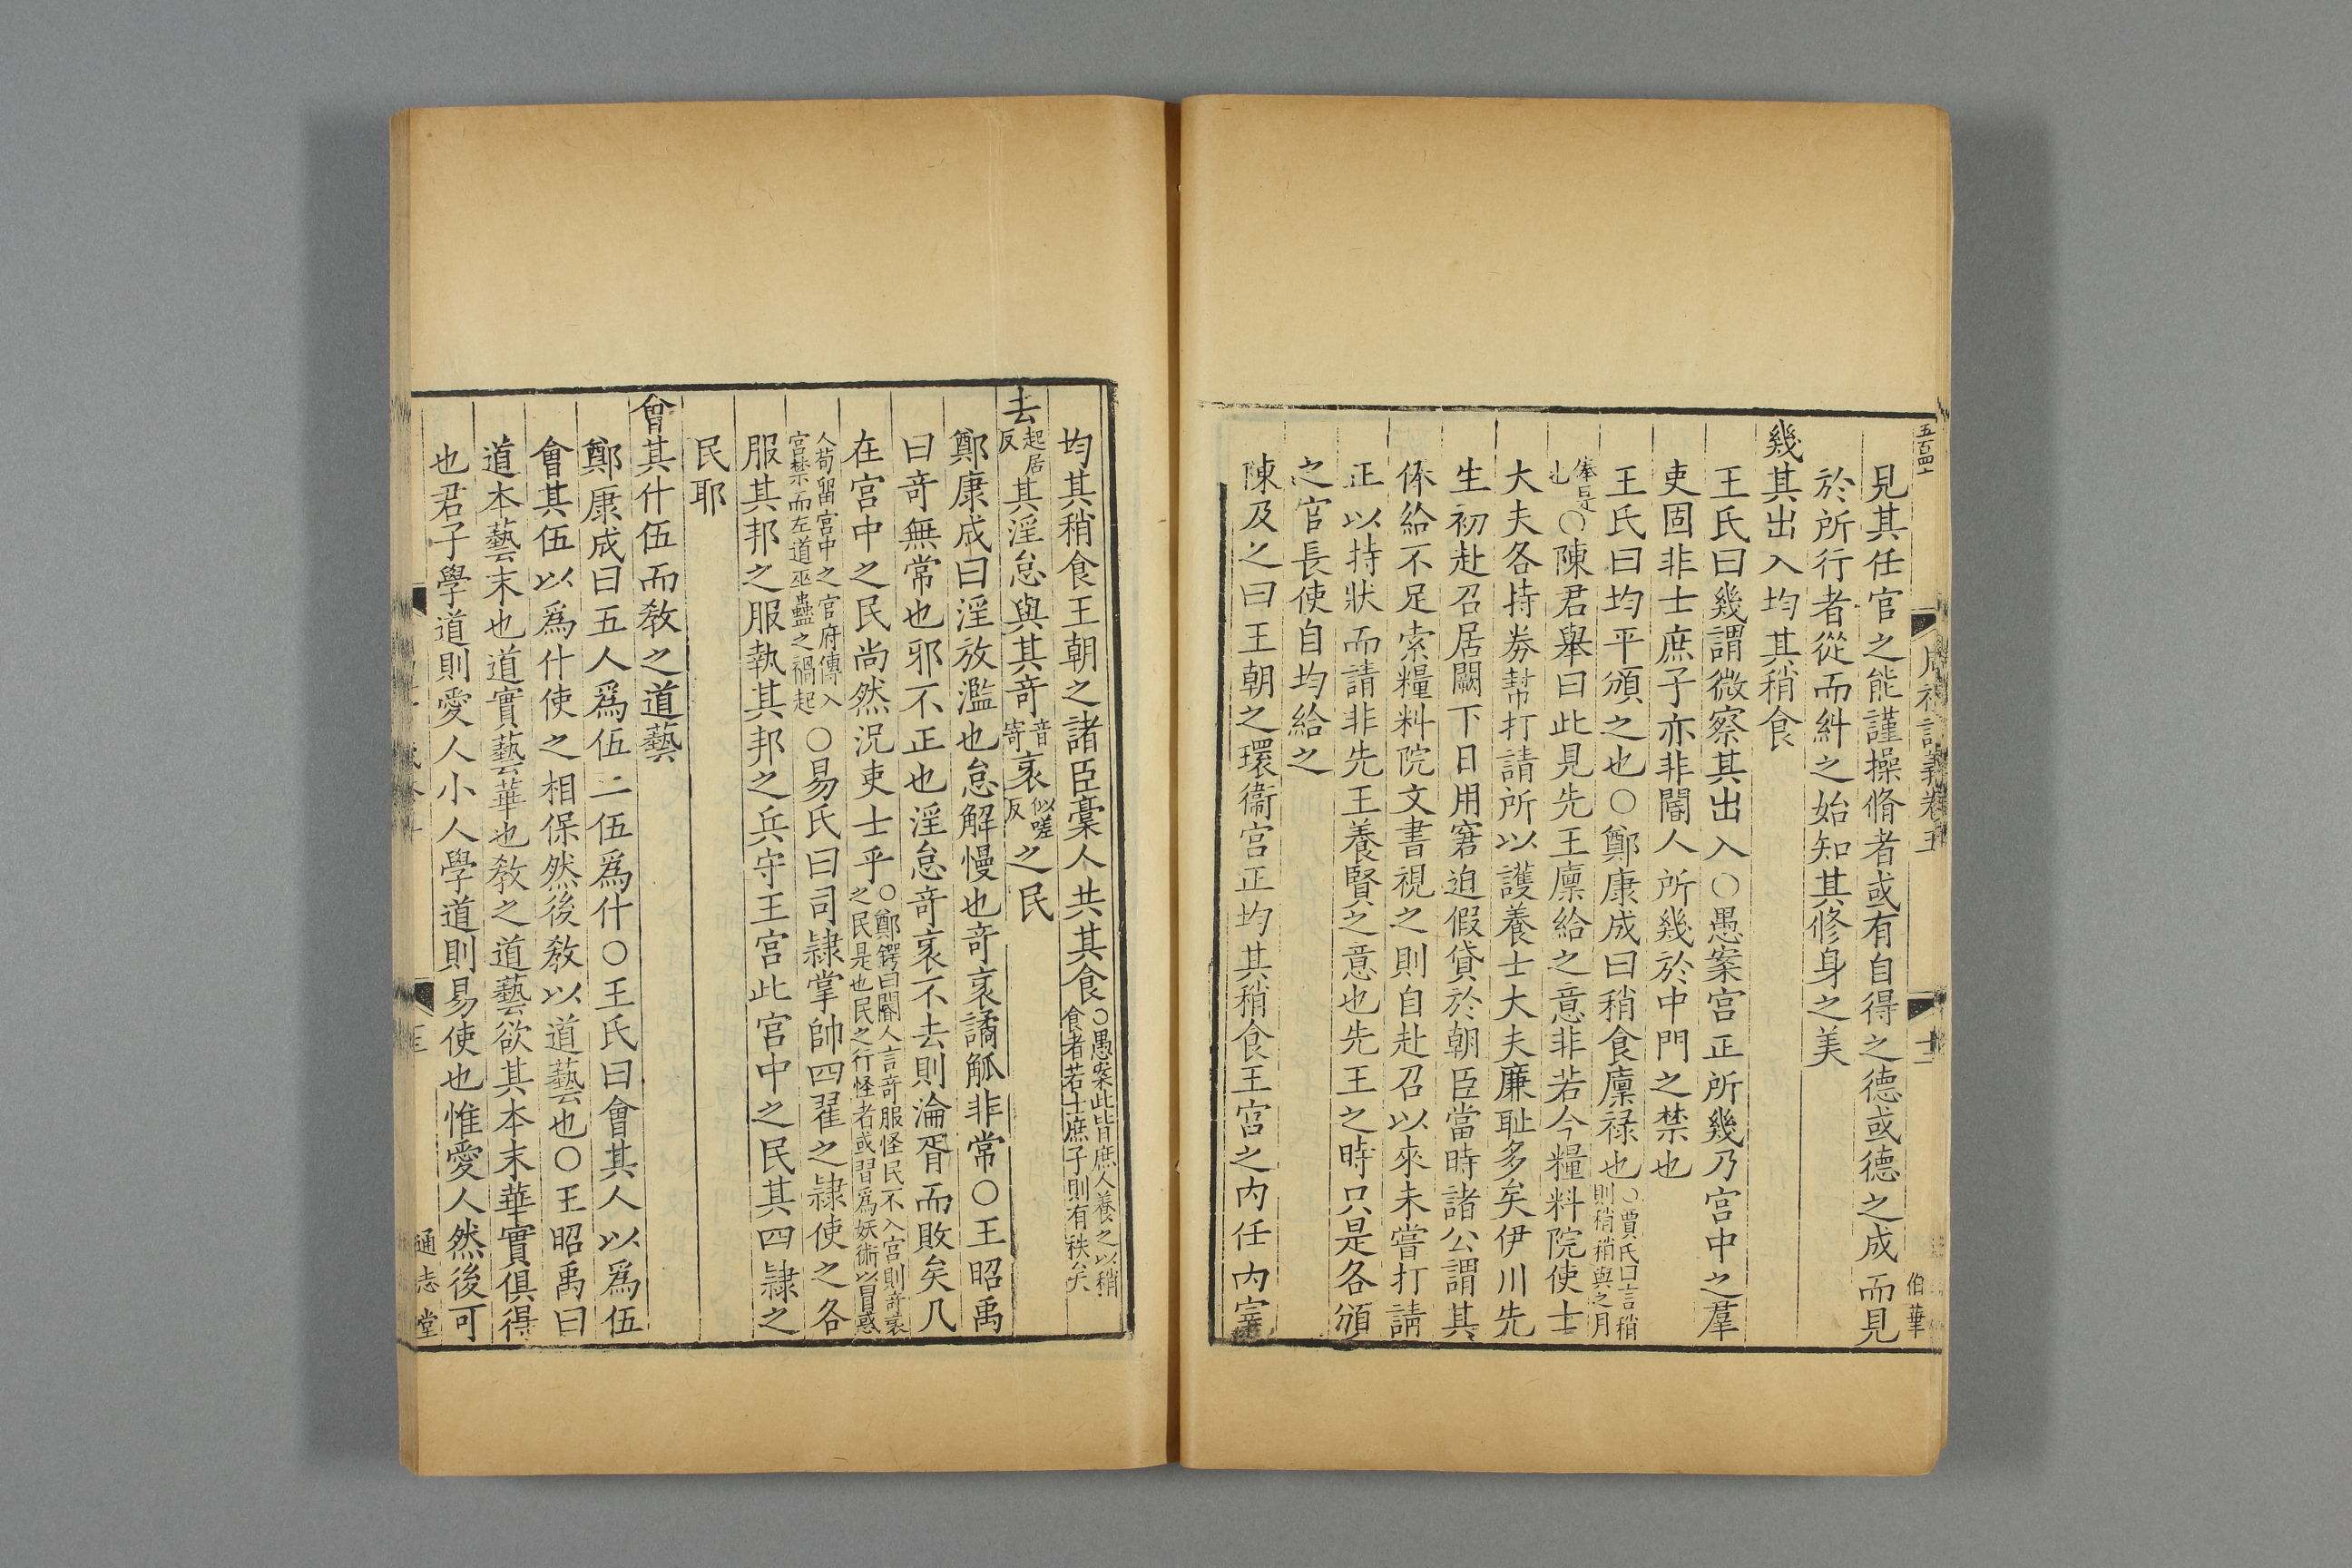 五百四十
周禮訂義卷五
十一
伯華
見其任官之能謹操脩者或有自得之德或德之成而見
於所行者從而糾之始知其修身之美
幾其出入均其稍食
王氏曰幾謂微察其出入○愚案宮正所幾乃宮中之羣
吏固非士庶子亦非閽人所幾於中門之禁也
王氏曰均平頒之也○鄭康成曰稍食廩祿也○賈氏曰言稍則稍稍與之月
俸是也○陳君舉曰此見先王廩給之意非若今糧料院使士
大夫各持券幇打請所以護養士大夫廉耻多矣伊川先
生初赴召居闕下日用窘迫假貸於朝臣當時諸公謂其
俸給不足索糧料院文書視之則自赴召以來未嘗打請
正以持狀而請非先王養賢之意也先王之時只是各頒
之官長使自均給之
陳及之曰王朝之環衞宮正均其稍食王宮之內任內宰
均其稍食王朝之諸臣稾人共其食○愚案此皆庶人養之以稍食者若士庶子則有秩矣
去起居反其淫怠與其奇音寄衺似嗟反之民
鄭康成曰淫放濫也怠解慢也奇衺譎觚非常○王昭禹
曰奇無常也邪不正也淫怠奇衺不去則淪胥而敗矣凡
在宮中之民尚然況吏士乎○鄭鍔曰閽人言奇服怪民不入宮則奇衺之民是也民之行怪者或習爲妖術以冒惑
人苟留宮中之官府傳入宮禁而左道巫蠱之禍起○易氏曰司隷掌帥四翟之隷使之各
服其邦之服執其邦之兵守王宮此宮中之民其四隷之
民耶
會其什伍而敎之道藝
鄭康成曰五人爲伍二伍爲什○王氏曰會其人以爲伍
會其伍以爲什使之相保然後敎以道藝也○王昭禹曰
道本藝末也道實藝華也敎之道藝欲其本末華實俱得
也君子學道則愛人小人學道則易使也惟愛人然後可
通志堂